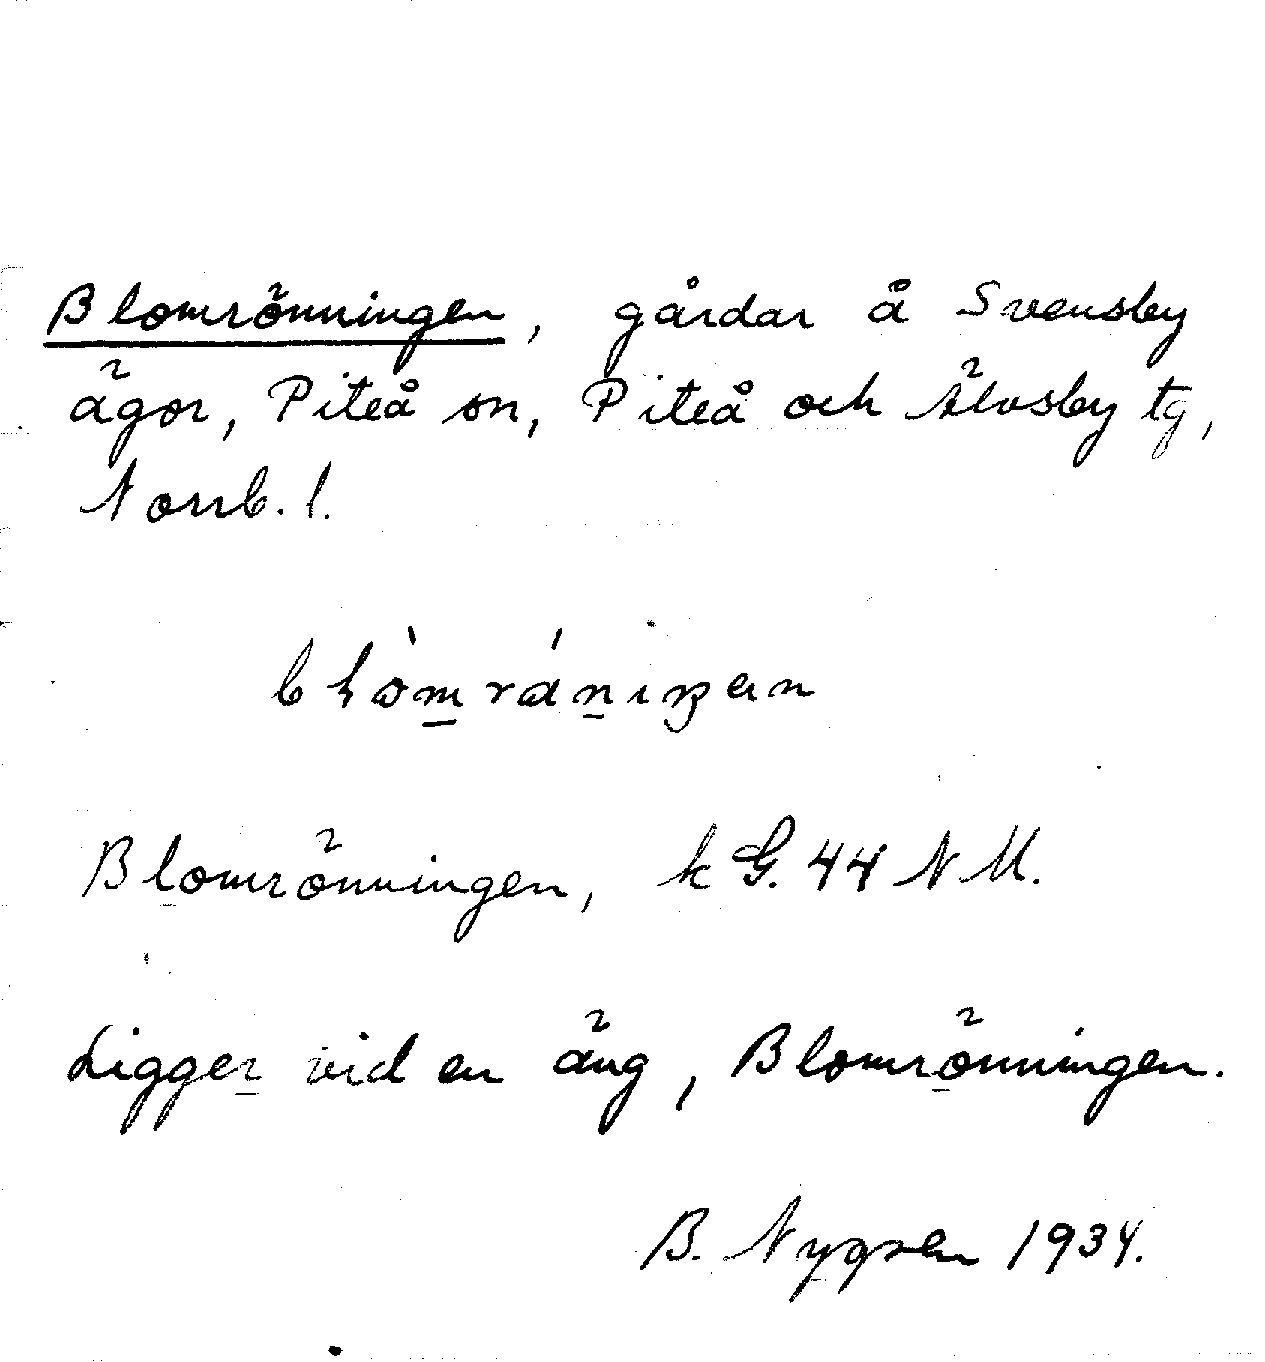 Blomrönningen, gårdar å Svensby
ägor, Piteå sn, Piteå och Älvsby tg,
Norrb. l.
Blomrönningen, k G. 44 N M.
Ligger vid en äng, Blomrönningen.
B. Nygren 1934.